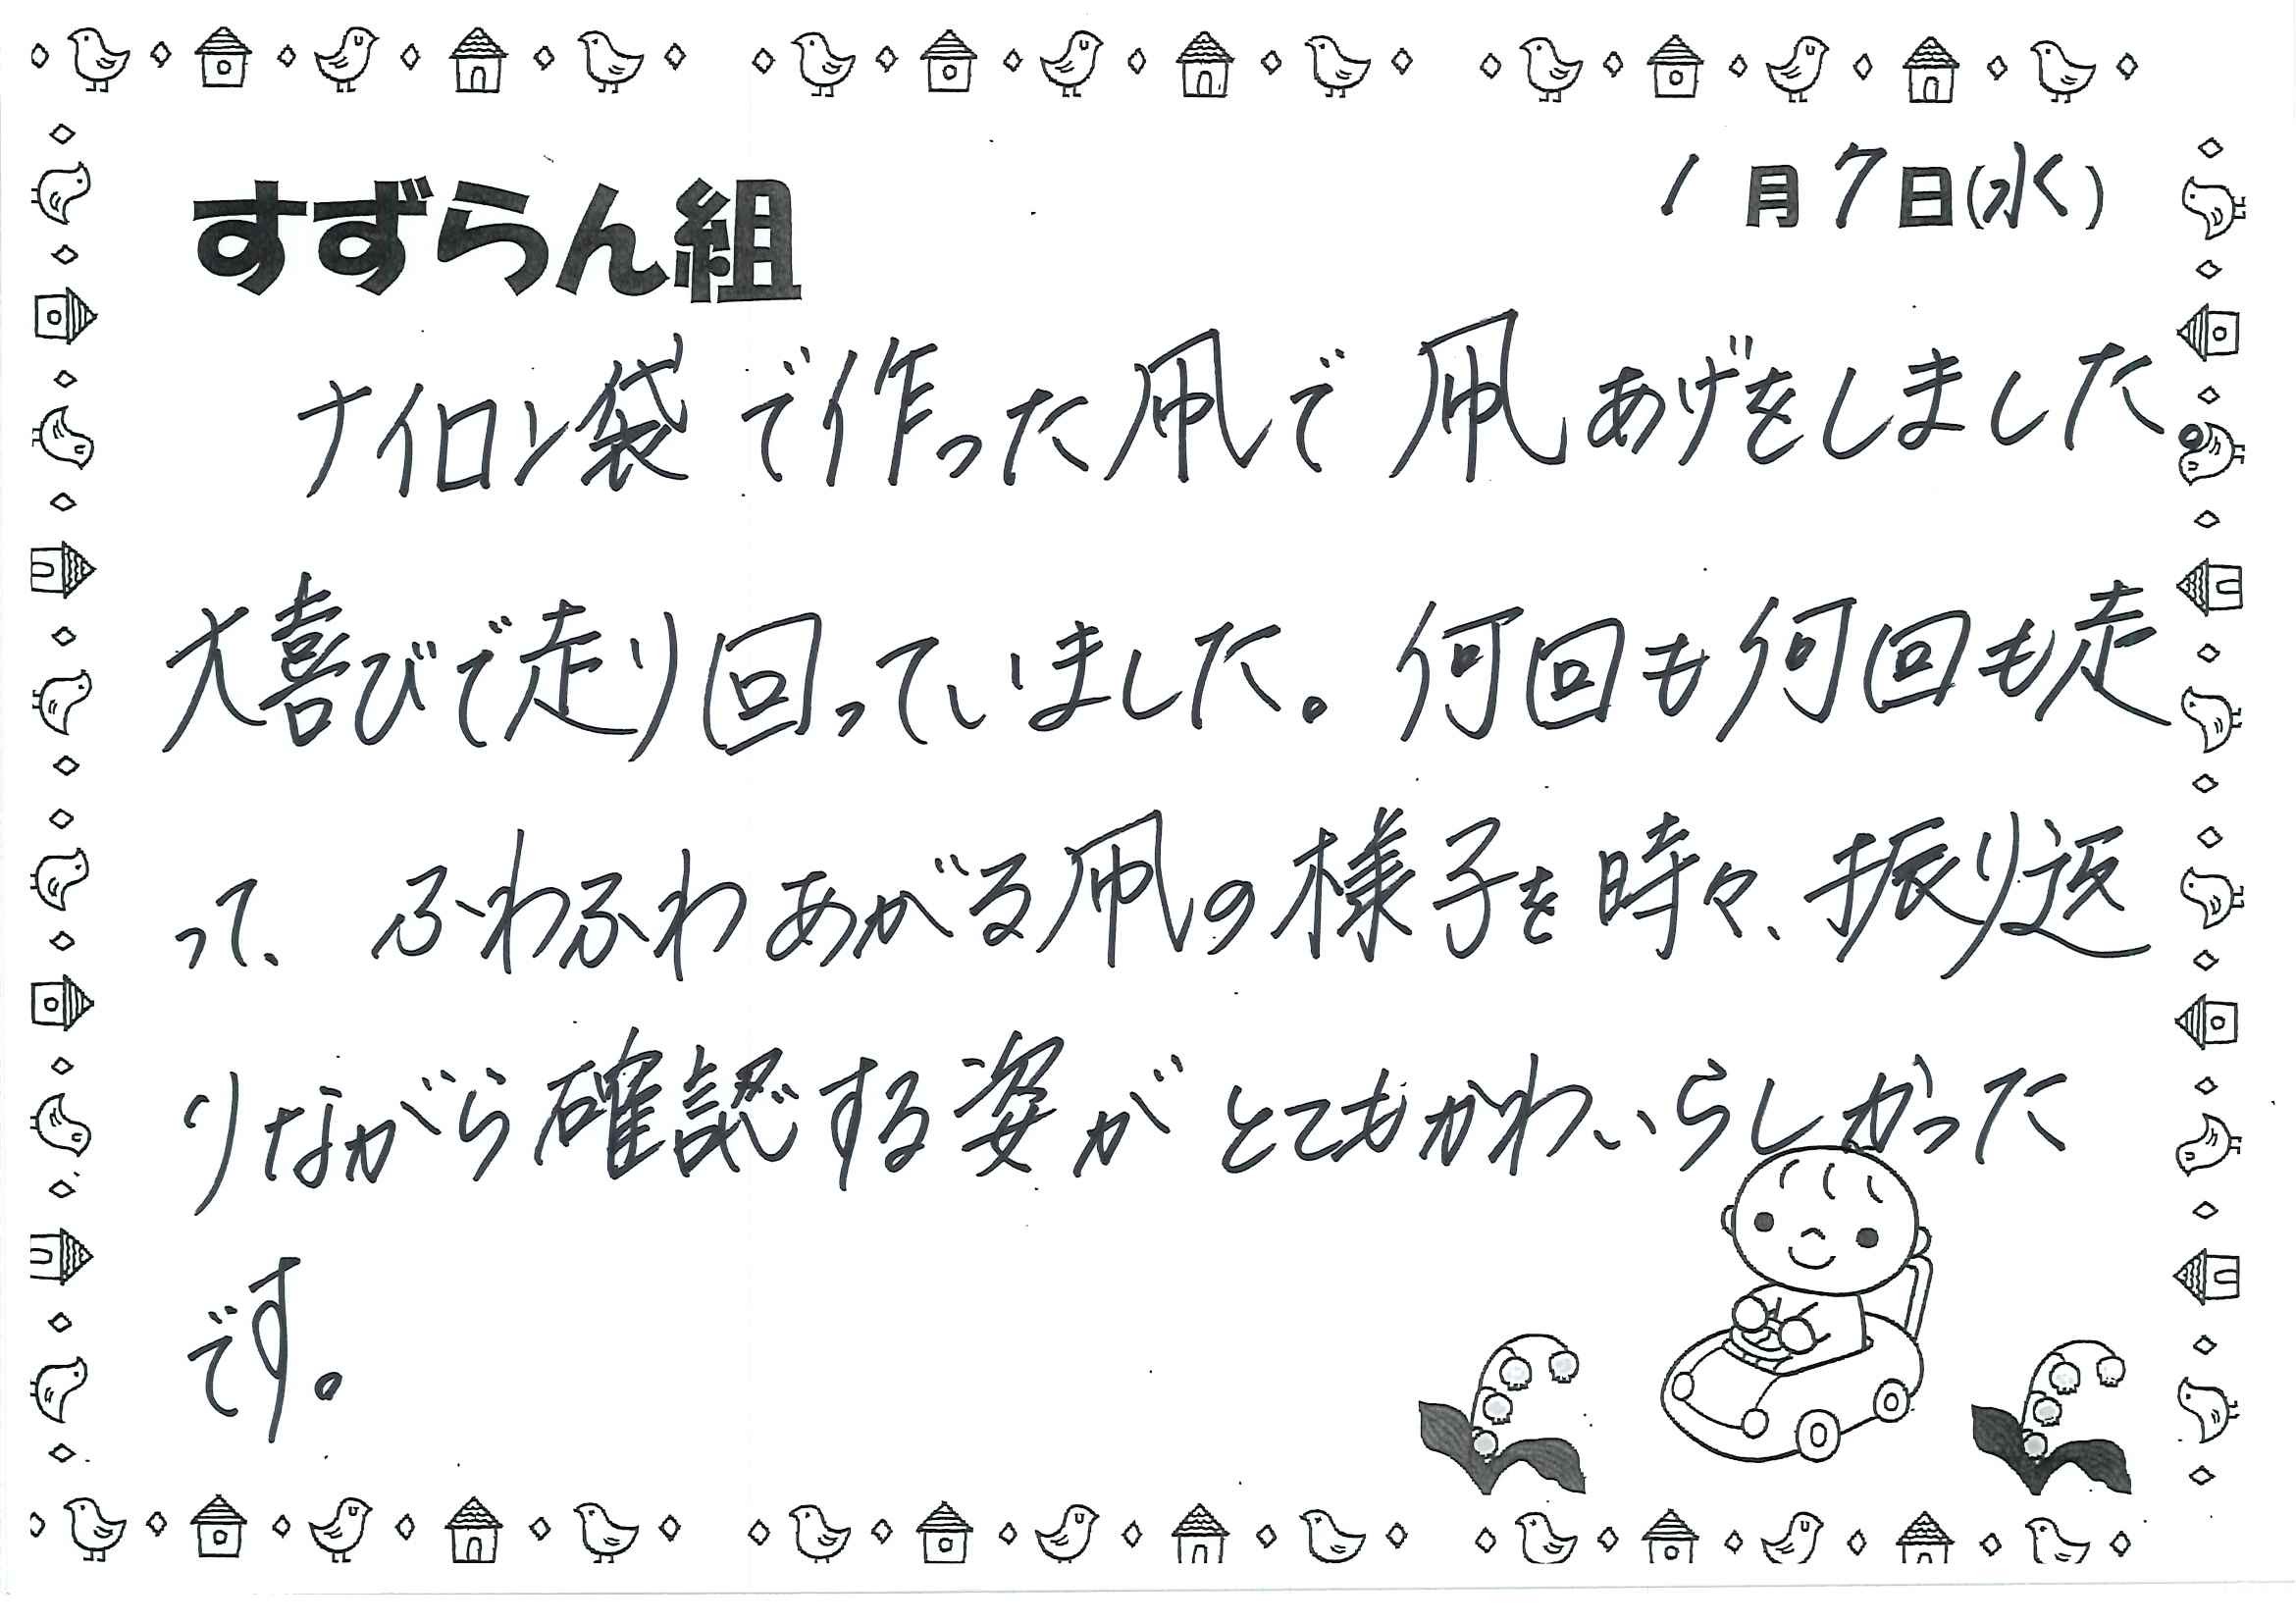 すずらん組
1月7日(水)
ナイロン袋で作った凧で凧あげをしました。
大喜びで走り回っていました。何回も何回も走
って、ふわふわあがる凧の様子を時々、振り返
りながら確認する姿がとてもかわいらしかった
です。